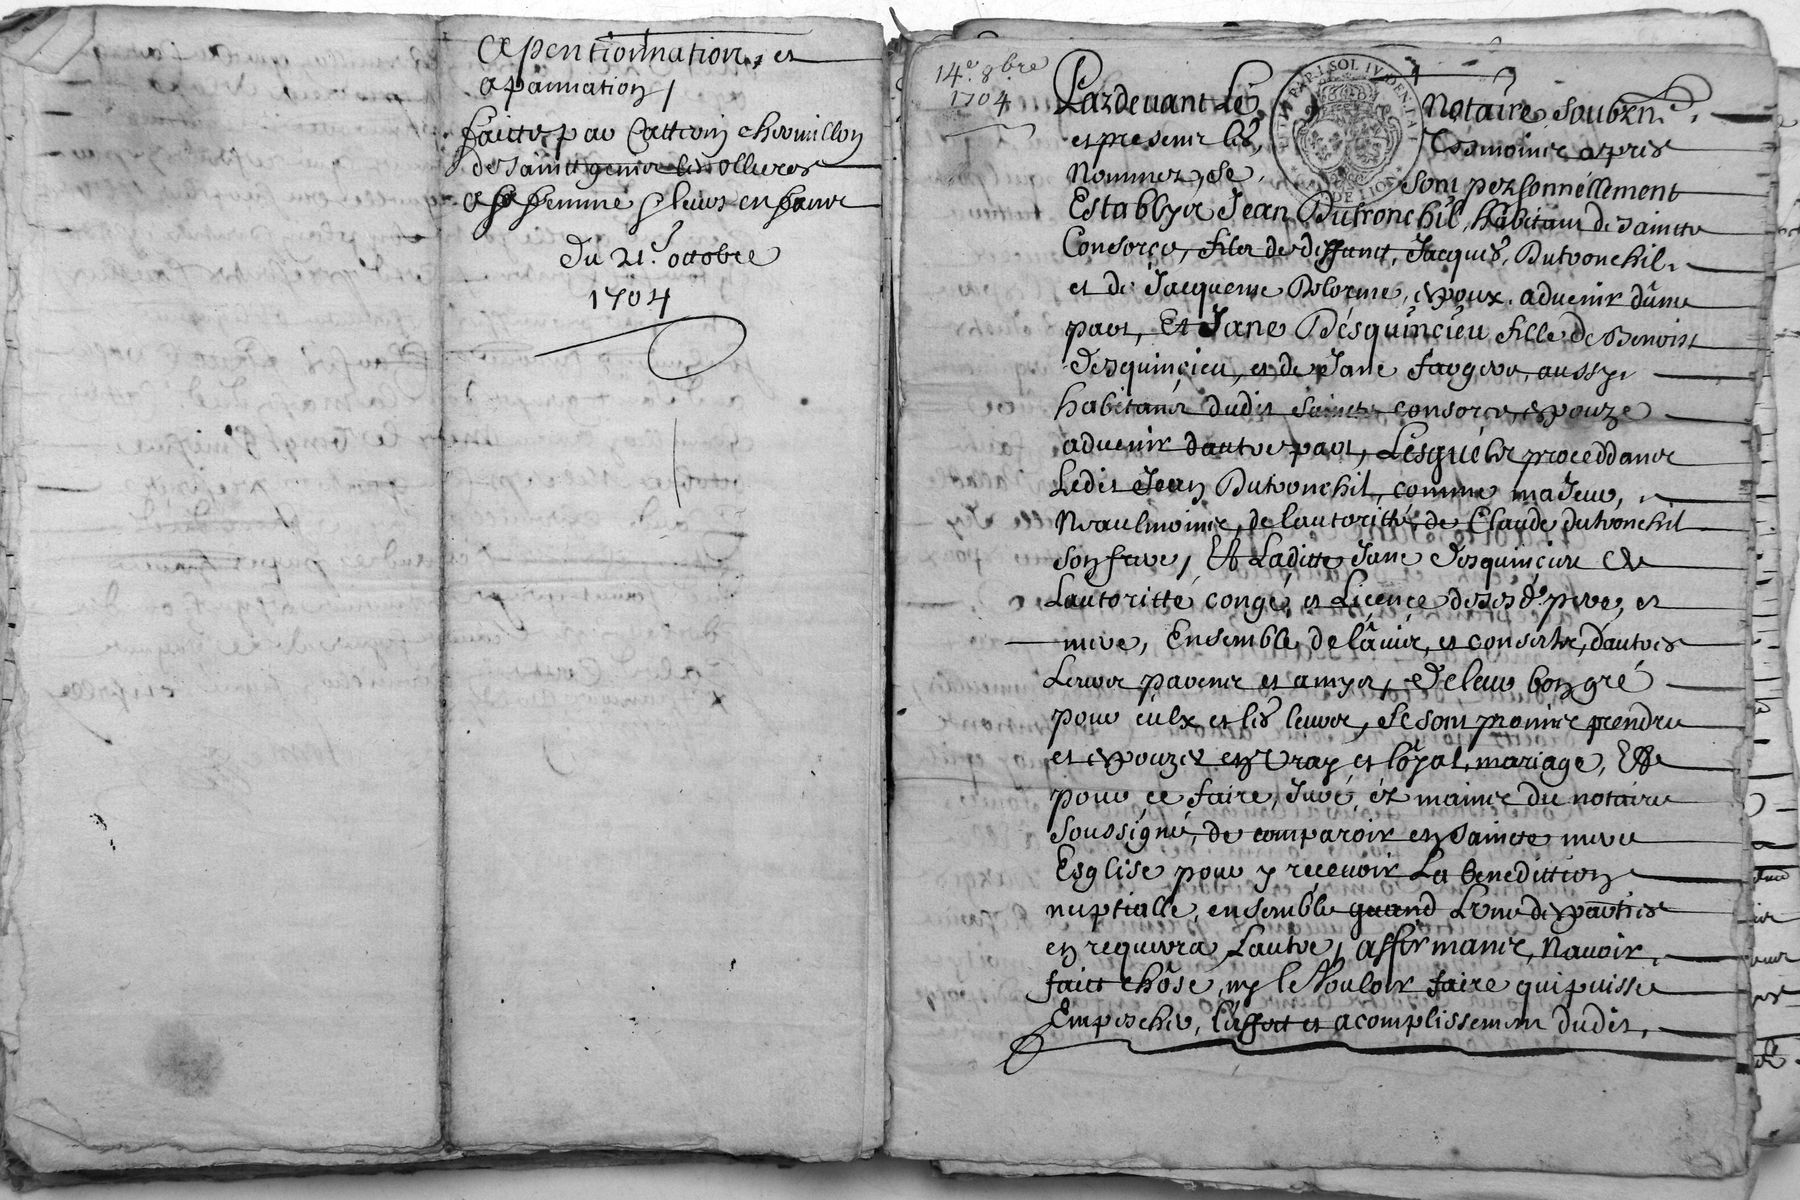 apentionnation et
apannation
faitte par Cattrin chermillon
de Sainct genis les ollieres
a sa femme & leurs enfans
du 21.e octobre
1704
14.e 8bre
1704
Pardevant Le Notaire soubzn.é
et presents les Tesmoins apres
Nommez, se sont personnellement
Establys Jean Dutronchil, habitant de saincte
Consorce, filz de deffunct, Jacques, Dutronchil,
et de Jacqueme Delorme, espoux advenir dune
part, Et Jane Desquincieu fille de Benoist
Desquincieu, et de Jane fargere, aussy
habitans dudit saincte consorce, espouze
advenir dautre part, Lesquels proceddants
Ledit Jean Dutronchil, comme majeur,
Neaulmoins, de lautoritté de Claude dutronchil
son frere, Et Laditte Jane Desquincieu de
Lautoritté congé, et Licence desesd. pere, et
mere, Ensemble de làvis, et conseil, dautres
Leurs parens et amys, de leur bon gré
pour eulx et les leurs, se sont promis prendre
et espouzer en vray et loyal, mariage, Et
pour ce faire, Juré, ez mains du notaire
soussigné, de comparoir en saincte mere
Esglise pour y recevoir La benediction
nuptialle, ensemble quand Lune des parties
en requerra Lautre, affirmants, Navoir
faict chose, ny le Vouloir faire qui puisse
Empescher, leffect et acomplissement dudit,